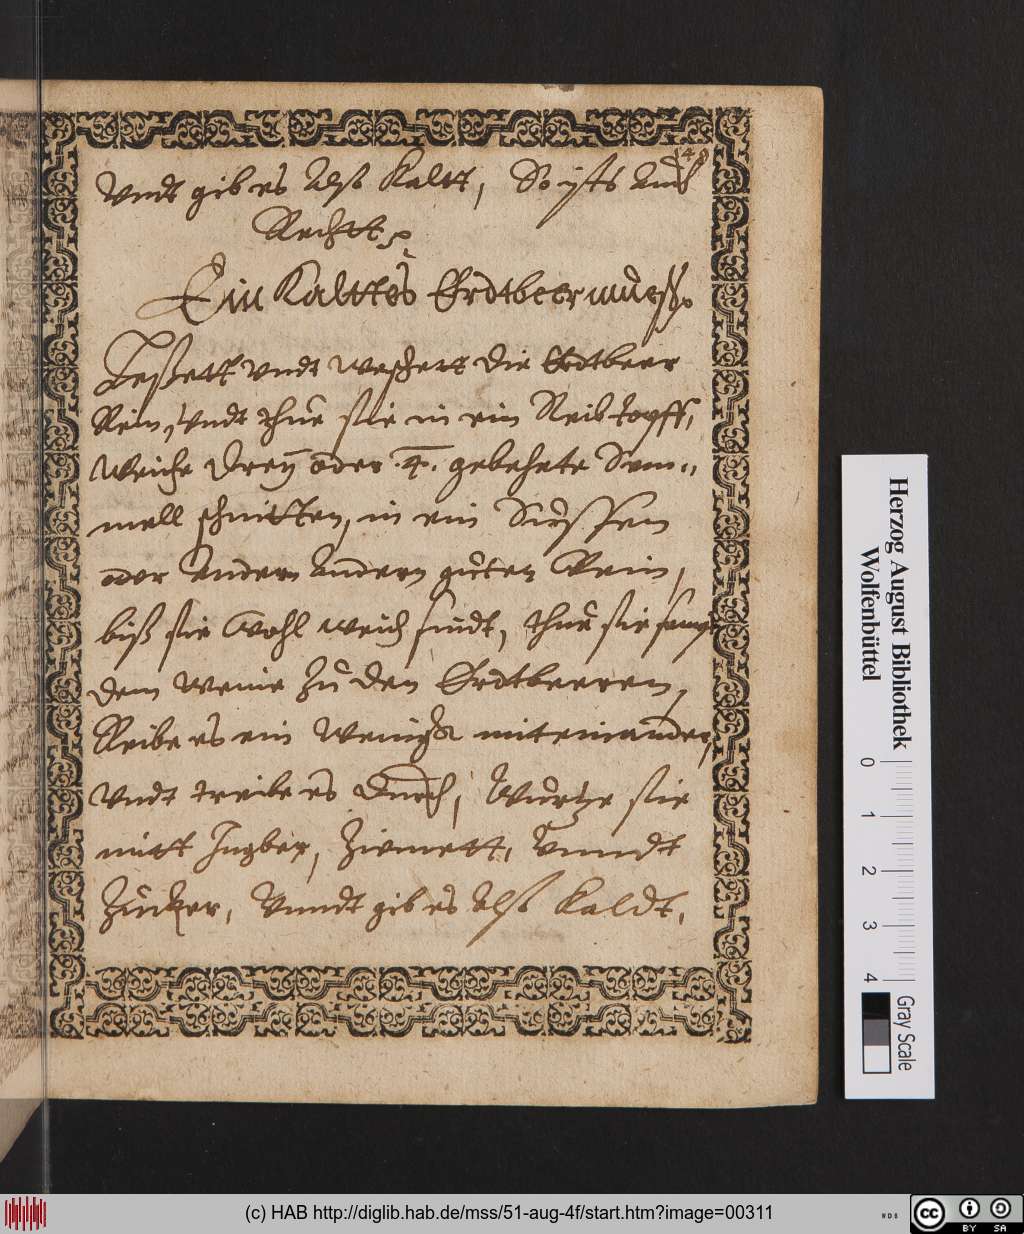 Vndt gib es Alß Kaltt, So ists auch
Rechtt
Ein Kalttes Erdtbeermueß
Leßett Vndt weschett die Erdtbeer
Rein, Vndt thue sie in ein Reib topff,
Weiche Dreÿ oder .4. gebehete Sem„
mell schnitten, in ein Süssen
oder Andern Andern guten Wein,
biß sie Wohl weich sindt, thue sie sampt
dem Weine Zu den Erdtbeeren,
Reibe es ein Wenigk miteinander,
Vndt treibe es Durch, Würtze sie
mitt Ingber, Zimett, Vnndt
Zucker, Vnndt gib es Alß Kaldt,
Herzog August Bibliothek
Wolfenbüttel
0 1 2 3 4
Gray Scale
(c) HAB http://diglib.hab.de/mss/51-aug-4f/start.htm?image=00311
WDB
cc BY SA